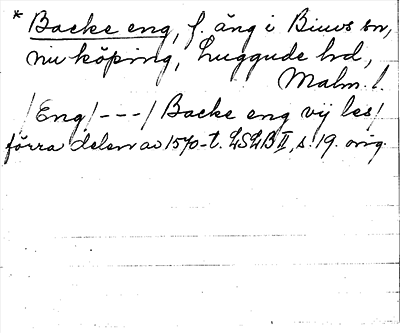 * Backe eng, f. äng i Biuvs sn,
nu köping, Luggude hd,
Malm. l.
/Eng/---/ Backe eng vij les/
förra delen av 1570-t. LSLB II, s. 19. orig.